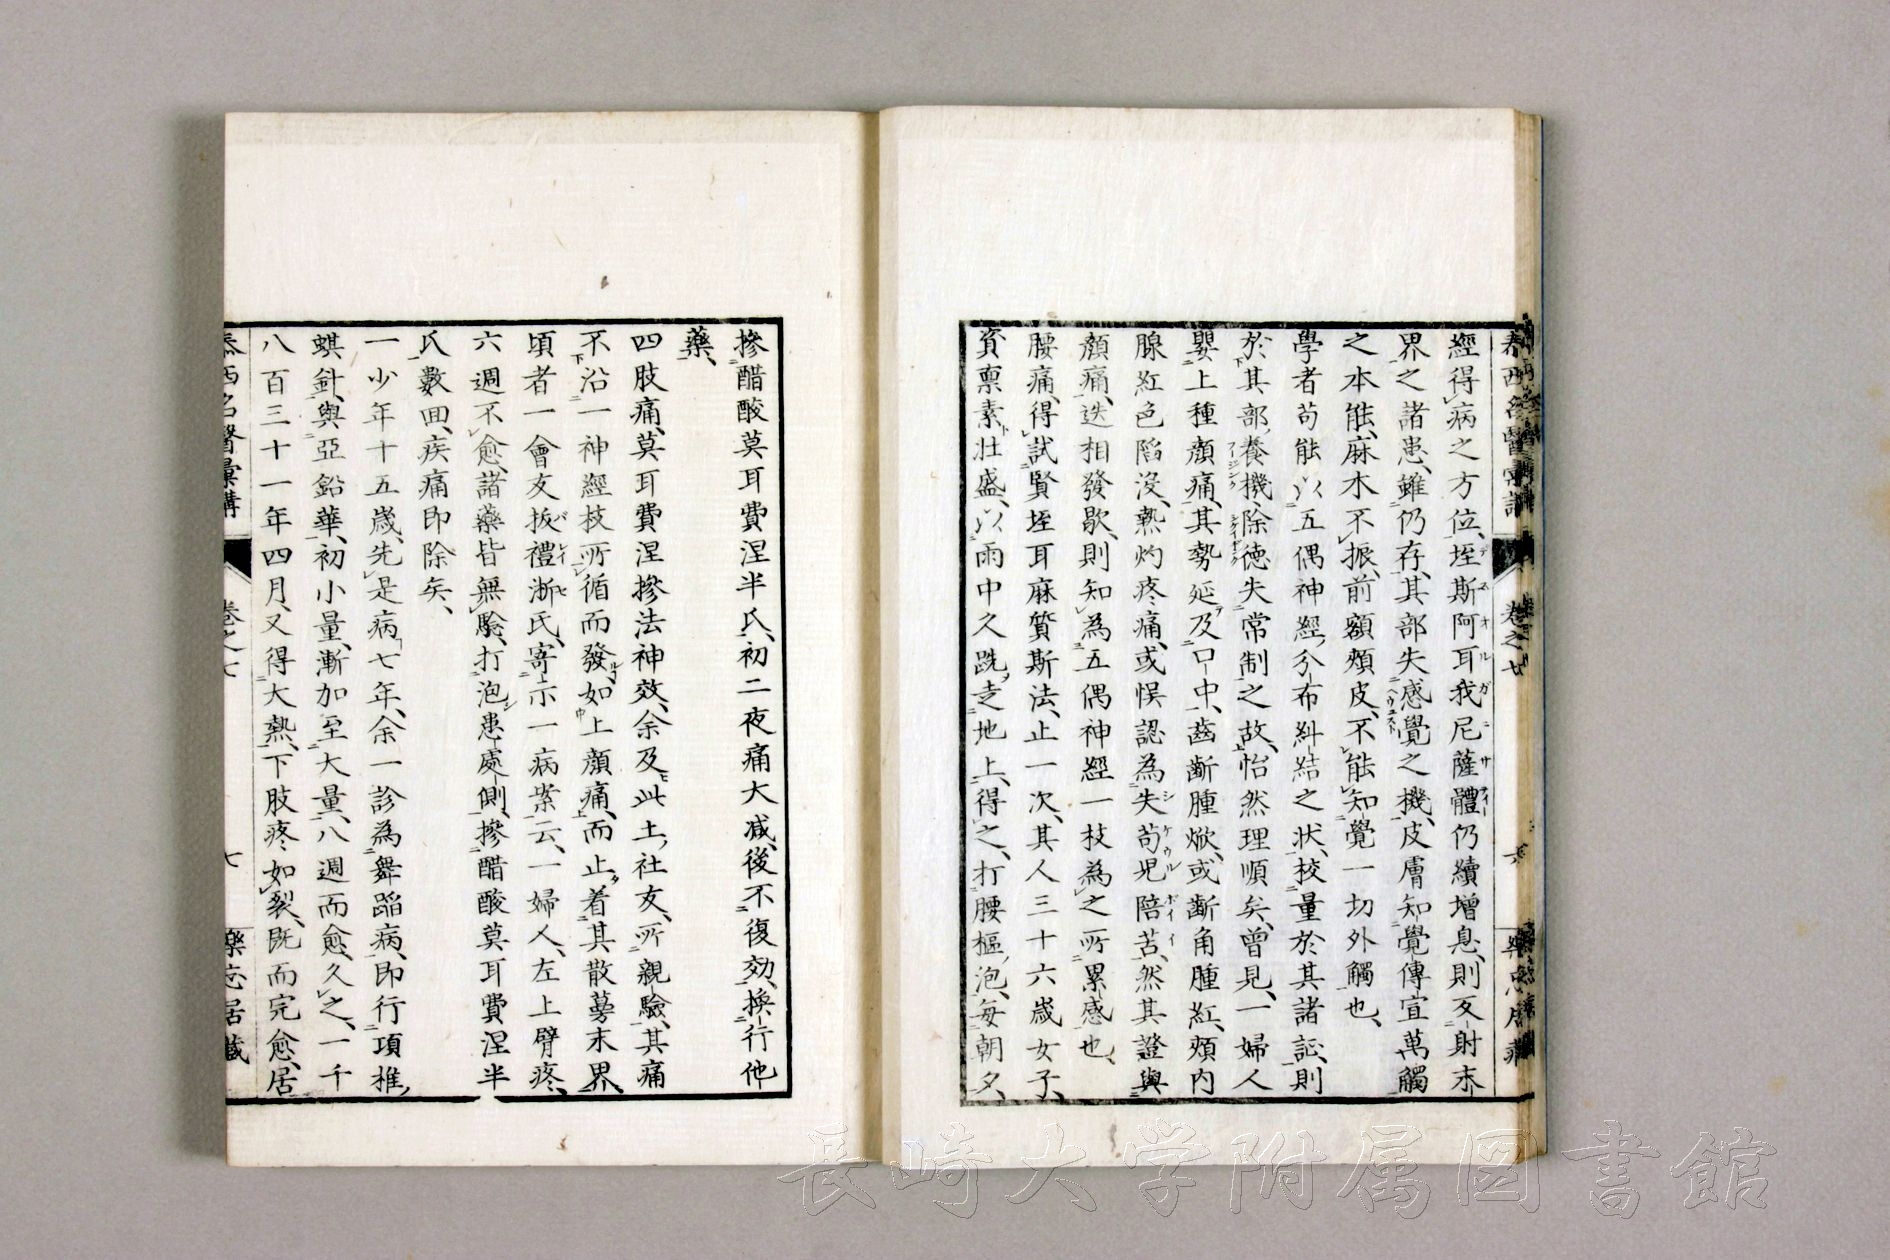 泰西名醫彙講 卷之七 六 樂志居藏
經得病之方位、垤斯阿耳我尼薩體仍續增息、則反射末
界之諸患、雖仍存、其部失感覺之機、皮膚知覺傳宣萬觸
之本能、麻木不振、前額頰皮、不能知覺一切外觸也、
學者苟能以五偶神經、分布糾結之狀、校量於其諸証、則
於其部、養機除德失常制之故、怡然理順矣、曾見、一婦人
嬰上種顏痛、其勢延及口中、齒齗腫焮、或齗角腫紅、頰內
腺紅色陷沒、熱灼疼痛、或悞認為失苟兒陪苦、然其證與
顏痛、迭相發歇、則知為五偶神經一枝為之所累感也、
腰痛、得試賢垤耳麻質斯法、止一次、其人三十六歲女子、
資稟素壯盛、以雨中久跣走地上、得之、打腰樞泡、每朝夕、
摻醋酸莫耳費涅半氏、初二夜痛大減、後不復効、換行他
藥、
四肢痛、莫耳費涅摻法神效、余及此土社友、所親驗、其痛
不沿一神經枝所循而發、如上顏痛、而止着其散蔓末界、
頃者一會友扳禮淅氏、寄示一病案云、一婦人、左上臂疼、
六週不愈、諸藥皆無驗、打泡患處側、摻醋酸莫耳費涅半
氏數回、疾痛即除矣、
一少年十五歲、先是病七年、余一診為舞蹈病、即行項椎
蜞針、與亞鉛華、初小量、漸加至大量、八週而愈、久之、一千
八百三十一年四月、又得大熱、下肢疼如裂、既而完愈、居
泰西名醫彙講 卷之七 七 樂志居藏
長崎大学附属図書館